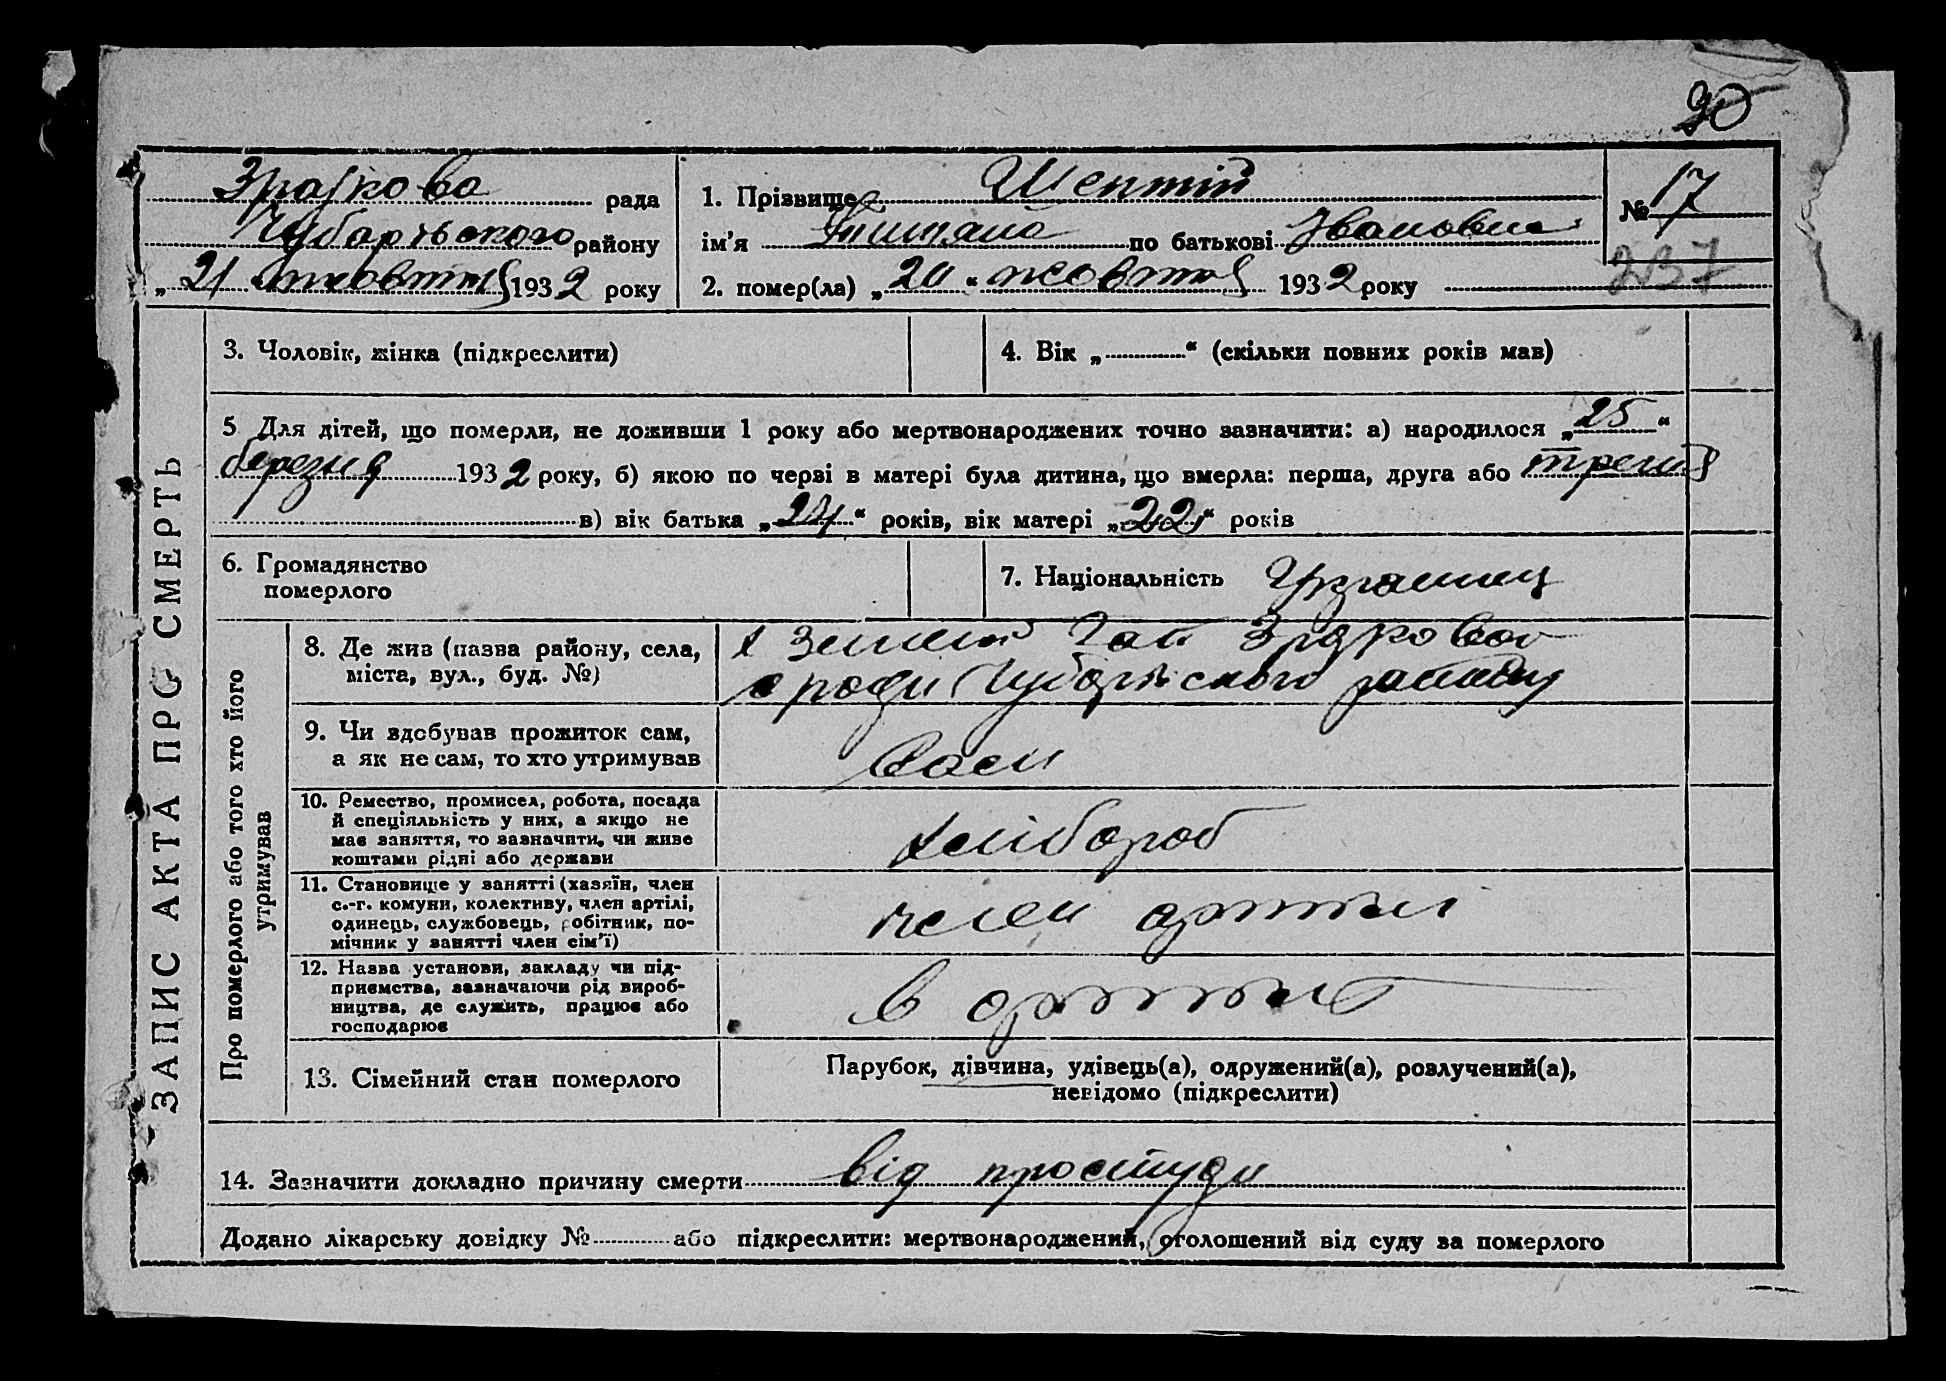 90
Зразкова рада
Чубарьського району
„ 21 " жовтня 1932 року
1. Прізвище Шептій
ім'я Титяна по батькові Івановна
2. помер(ла) „ 20 “ жовтня 1932 року
№ 17
237
ЗАПИС АКТА ПРО СМЕРТЬ
3. Чоловік, жінка (підкреслити)
4. Вік „ “ (скільки повних років мав)
5 Для дітей, що померли, не доживши 1 року або мертвонароджених точно зазначити: а) народилося „ 25 “
березня 1932 року, б) якою по черві в матері була дитина, що вмерла: перша, друга або третя
в) вік батька „ 24 “ років, вік матері „ 22 “ років
6. Громадянство
померлого
7. Національність Украинец
Про померлого або того хто його
утримував
8. Де жив (назва району, села,
міста, вул., буд. №)
х Зелений Гай Зразковой
с ради Чубарьского району
9. Чи здобував прожиток сам,
а як не сам, то хто утримував
10. Ремество, промисел, робота, посада
й спеціяльність у них, а якщо не
має заняття, то зазначити, чи живе
коштами рідні або держави
хлібороб
11. Становище у занятті (хазяїн, член
с.-г. комуни, колективу, член артілі,
одинець, службовець, робітник, по-
мічник у занятті член сім'ї)
член артілі
12. Назва установи, закладу чи під-
приємства, зазначаючи рід вироб-
ництва, де служить, працює або
господарює
в артілі
13. Сімейний стан померлого
Парубок, дівчина, удівець(а), одружений(а), розлучений(а),
невідомо (підкреслити)
14. Зазначити докладно причину смерти від простуди
Додано лікарську довідку № або підкреслити: мертвонароджений, оголошений від суду за померлого